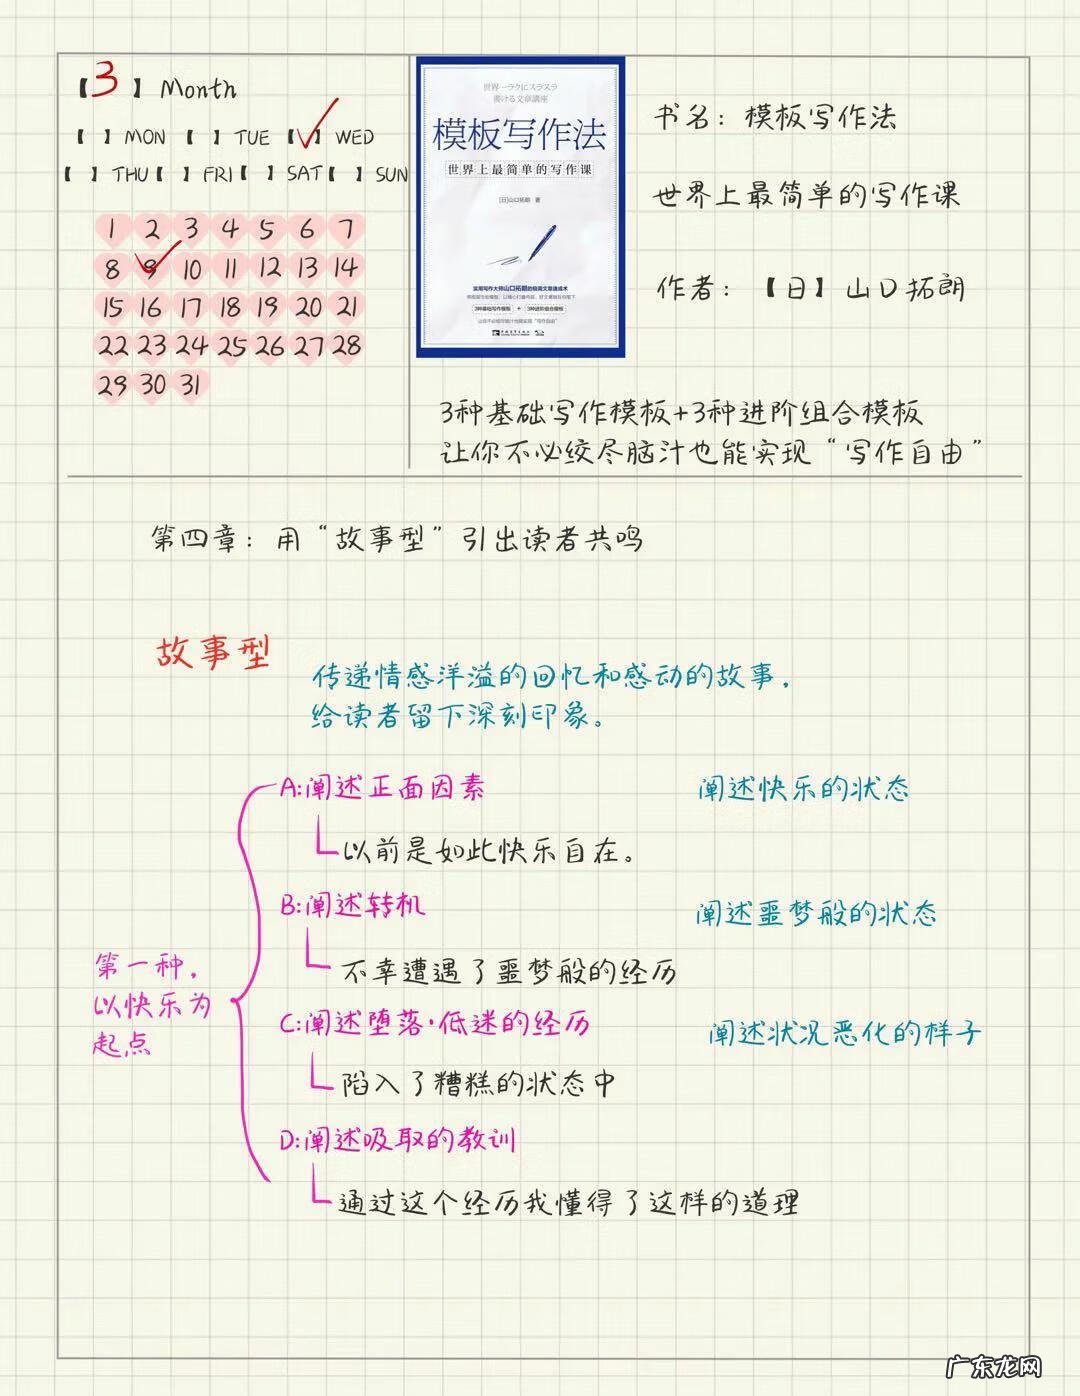 【3】Month
【 】MON 【 】TUE 【✓】WED
【 】THU【 】FRI【 】SAT【 】SUN
1 2 3 4 5 6 7
8 9 10 11 12 13 14
15 16 17 18 19 20 21
22 23 24 25 26 27 28
29 30 31
世界一ラクにスラスラ
書ける文章講座
模板写作法
世界上最简单的写作课
[日]山口拓朗 著
实用写作大师山口拓朗的极简文章速成术
3种基础写作模板 + 3种进阶组合模板
让你不必绞尽脑汁也能实现“写作自由”
书名：模板写作法
世界上最简单的写作课
作者：【日】山口拓朗
3种基础写作模板+3种进阶组合模板
让你不必绞尽脑汁也能实现“写作自由”
第四章：用“故事型”引出读者共鸣
故事型
传递情感洋溢的回忆和感动的故事，
给读者留下深刻印象。
第一种，
以快乐为
起点
A:阐述正面因素 阐述快乐的状态
以前是如此快乐自在。
B:阐述转机 阐述噩梦般的状态
不幸遭遇了噩梦般的经历
C:阐述堕落·低迷的经历 阐述状况恶化的样子
陷入了糟糕的状态中
D:阐述吸取的教训
通过这个经历我懂得了这样的道理
广东龙网